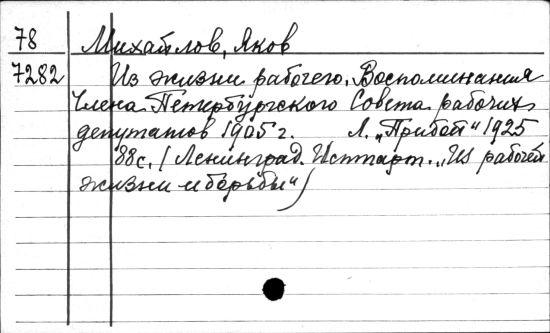 78 Михайлов, Яков
7282 Из жизни рабочего. Воспоминания
члена Петербургского Совета рабочих
депутатов 1905 г. Л. „Прибой“ 1925
88с. (Ленинград. Истпарт. „Из рабочей
жизни и борьбы“)